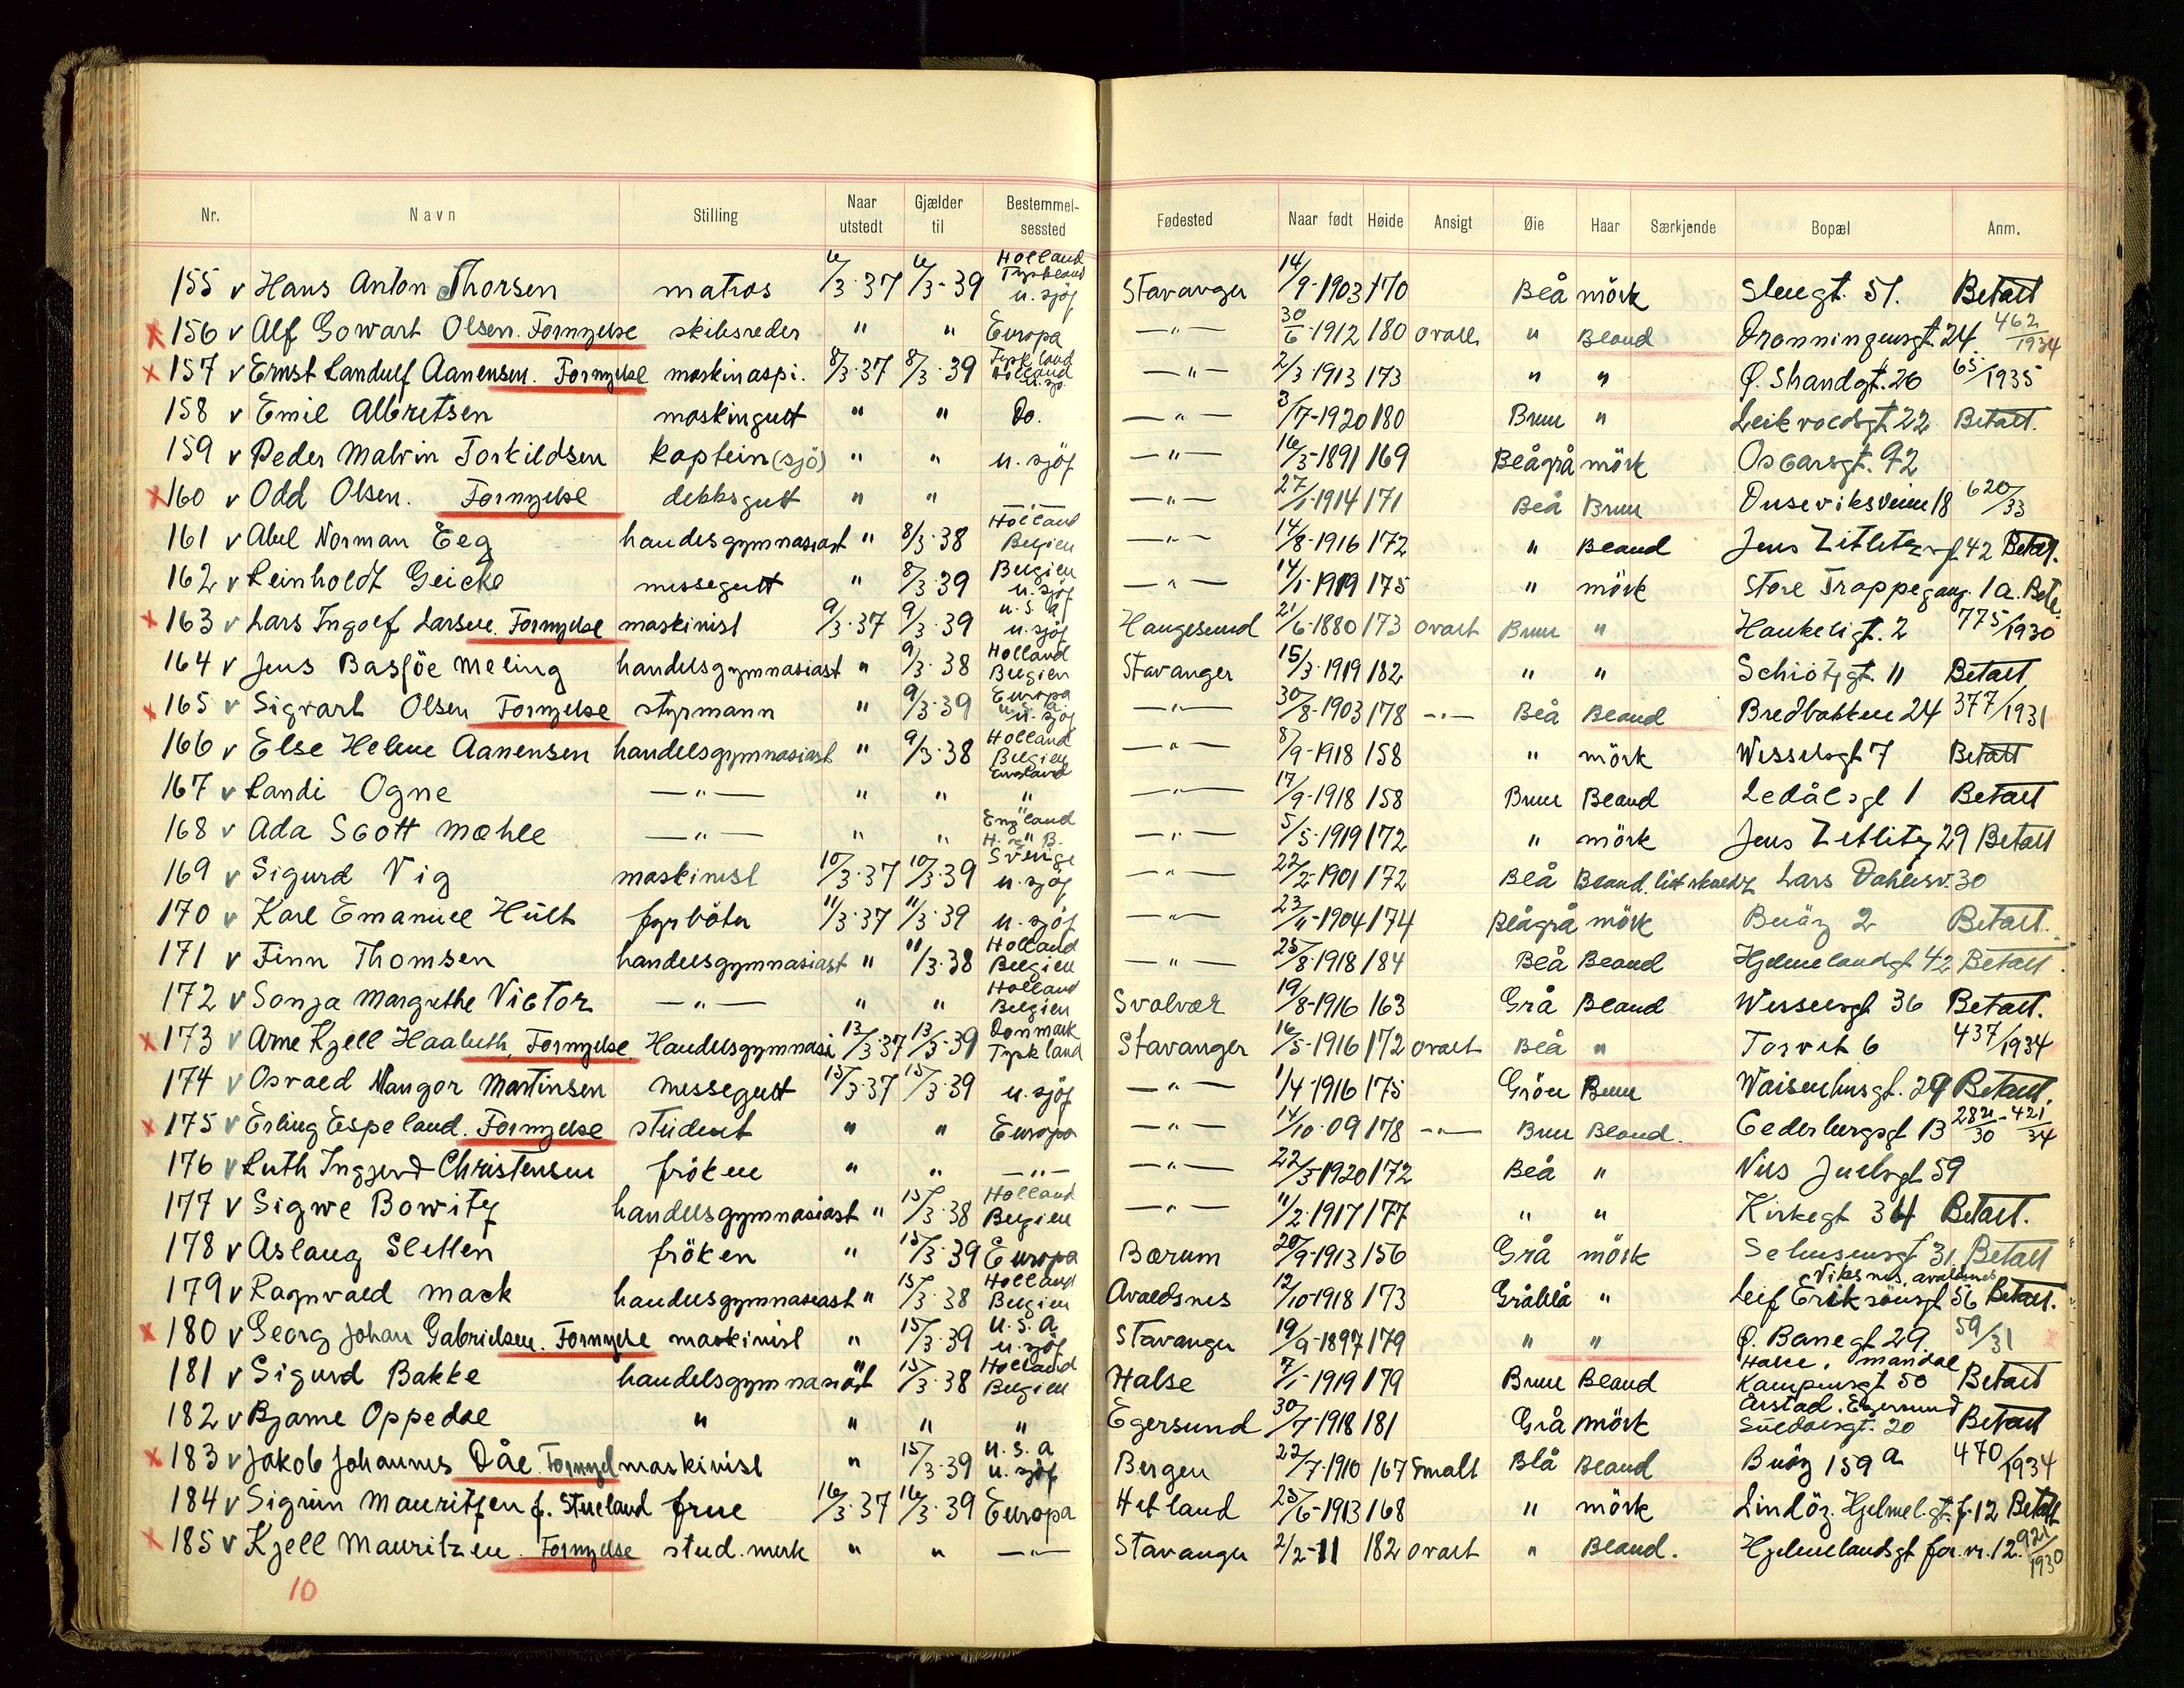 Nr. Navn Stilling Naar utstedt Gjælder til Bestemmelsessted Fødested Naar født Høide Ansigt Øie Haar Særkjende Bopæl Anm.
155 v Hans Anton Thorsen matros 6/3-37 6/3-39 Holland Tyskland u. sjöf Stavanger 14/9-1903 170 Blå mörk 51. Betalt
x 156 v Alf Gowart Olsen. Fornyelse skibsreder " " Europa —"— 30/6-1912 180 ovalt " Blond Dronningensgt 24 462/1934
x 157 v Ernst Landulf Aanensen. Fornyelse maskinaspi. 8/3-37 8/3-39 Tyskland Holland u. sjö. —"— 2/3-1913 173 " " Ø. Strandgt. 26 65/1935
158 v Emil Albretsen maskingutt " " Do. —"— 3/7-1920 180 Brun " Leikvoldsgt 22 Betalt.
159 v Peder Malvin Torkildsen kaptein (sjö) " " u. sjöf —"— 16/5-1891 169 Blågrå mörk Oscarsgt. 92
x 160 v Odd Olsen. Fornyelse dekksgutt " " —"— —"— 27/1-1914 171 Blå Brun Duseviksveien 18 620/33
161 v Abel Norman Eeg handelsgymnasiast " 8/3-38 Holland Belgien —"— 14/8-1916 172 " Blond Jens Zetlitzgt 42 Betalt.
162 v Reinholdt Geicke messegutt " 8/3-39 Belgien u. sjöf —"— 14/1-1919 175 " mörk Store Trappegang. 1a. Bet.
x 163 v Lars Ingolf Larsen. Fornyelse maskinist 9/3-37 9/3-39 U.S.A u. sjöf Haugesund 21/6-1880 173 ovalt Brun " Haukeligt. 2 775/1930
164 v Jens Basföe Meling handelsgymnasiast " 9/3-38 Holland Belgien Stavanger 15/3-1919 182 " " Schiötzgt. 11 Betalt
x 165 v Sigvart Olsen Fornyelse styrmann " 9/3-39 Europa U.S.A. u. sjöf —"— 30/8-1903 178 —"— Blå Blond Bredbakken 24 377/1931
166 v Else Helene Aanensen handelsgymnasiast " 9/3-38 Holland Belgien England —"— 8/9-1918 158 " mörk Wesselsgt 7 Betalt
167 v Randi Ogne —"— " " " —"— 17/9-1918 158 Brun Blond Ledålsgt 1 Betalt
168 v Ada Scott Mæhle —"— " " England H. og B. —"— 5/5-1919 172 " mörk Jens Zetlitz 29 Betalt
169 v Sigurd Vig maskinist 10/3-37 10/3-39 Sverige u. sjöf —"— 22/2-1901 172 Blå Blond. litt skaldz Lars Dahlesv. 30
170 v Karl Emanuel Hült fyrböter 11/3-37 11/3-39 u. sjöf —"— 23/11-1904 174 Blågrå mörk Buöy 2 Betalt.
171 v Finn Thomsen handelsgymnasiast " 11/3-38 Holland Belgien —"— 25/8-1918 184 Blå Blond Hjelmelandsgt 42 Betalt.
172 v Sonja Margrethe Victor —"— " " Holland Belgien Svolvær 19/8-1916 163 Grå Blond Wesselsgt 36 Betalt.
x 173 v Arne Kjell Haaluth, Fornyelse Handelsgymnasi 13/3-37 13/3-39 Danmark Tyskland Stavanger 16/5-1916 172 ovalt Blå " Torvet 6 437/1934
174 v Osvald Naugor Martinsen messegutt 15/3-37 15/3-39 u. sjöf —"— 1/4-1916 175 Grön Brun Waisenhusgt. 29 Betalt.
x 175 v Erling Espeland. Fornyelse student " " Europa —"— 14/10-09 178 —"— Brun Blond. Cederbergsgt 13 2821/30 - 421/34
176 v Ruth Ingjerd Christensen fröken " " —"— —"— 22/5-1920 172 Blå " Nils Juelsgt 59
177 v Sigwe Bowitz handelsgymnasiast " 15/3-38 Holland Belgien —"— 11/2-1917 177 " " Kirkegt 34 Betalt.
178 v Aslaug Sletten fröken " 15/3-39 Europa Bærum 20/9-1913 156 Grå mörk Sehusensgt 31 Betalt
179 v Ragnvald Mack handelsgymnasiast " 15/3-38 Holland Belgien Avaldsnes 12/10-1918 173 Gråblå " Viksnes, avaldsnes Leif Eriksönsgt 56 Betalt.
x 180 v Georg Johan Gabrielsen. Fornyelse maskinist " 15/3-39 U.S.A u. sjöf Stavanger 19/9-1897 179 " " Ø. Banegt 29. 59/31
181 v Sigurd Bakke handelsgymnasiast " 15/3-38 Holland Belgien Halse 7/1-1919 179 Brun Blond Halse, Mandal Kampensgt 50 Betalt
182 v Bjarne Oppedal " " " " Egersund 30/7-1918 181 Grå mörk Årstad, Egersund Suldalsgt. 20 Betalt
x 183 v Jakob Johannes Dåe. Fornyel maskinist " 15/3-39 U.S.A u. sjöf Bergen 22/7-1910 167 Smalt Blå Blond Buöy 159 a 470/1934
184 v Sigrun Mauritzen f. Stueland frue 16/3-37 16/3-39 Europa Hetland 25/6-1913 168 " mörk Lindöy. Hjelmel.gt. f. 12 Betalt
x 185 v Kjell Mauritzen. Fornyelse stud. merk " " —"— Stavanger 2/2-11 182 ovalt " Blond. Hjelmelandsgt for. nr. 12. 921/1930
10